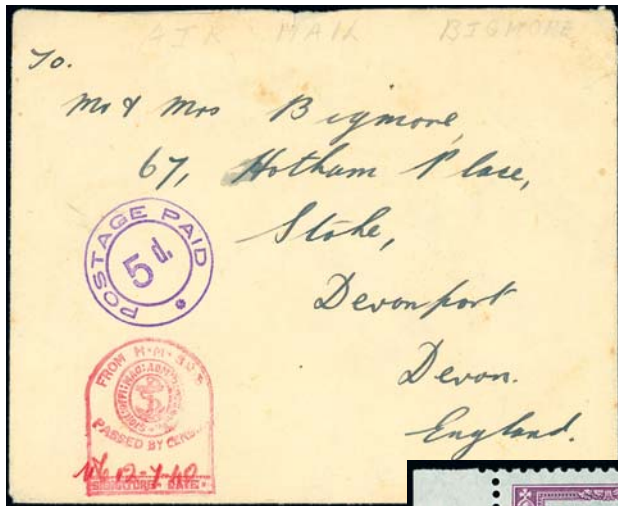 AIR MAIL BIGMORE
To.
Mr & Mrs Bigmore,
67, Hotham Place,
Stoke,
Devonport
Devon.
England.
POSTAGE PAID
5d.
FROM H.M.
PASSED BY CENSOR
12-7-40
SIGNATURE DATE